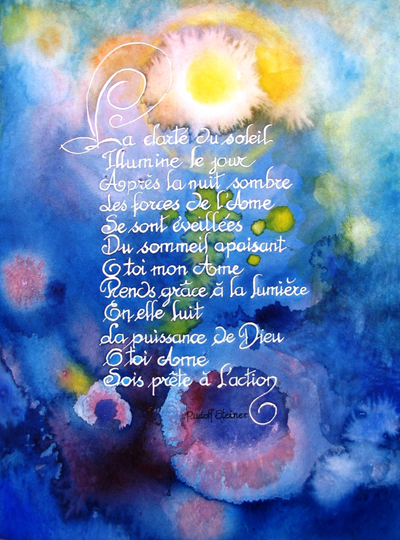 La clarté du soleil
Illumine le jour
Après la nuit sombre
Les forces de l'Ame
Se sont éveillées
Du sommeil apaisant
O toi mon Ame
Rends grâce à la lumière
En elle luit
La puissance de Dieu
O toi Ame
Sois prête à l'action
Rudolf Steiner